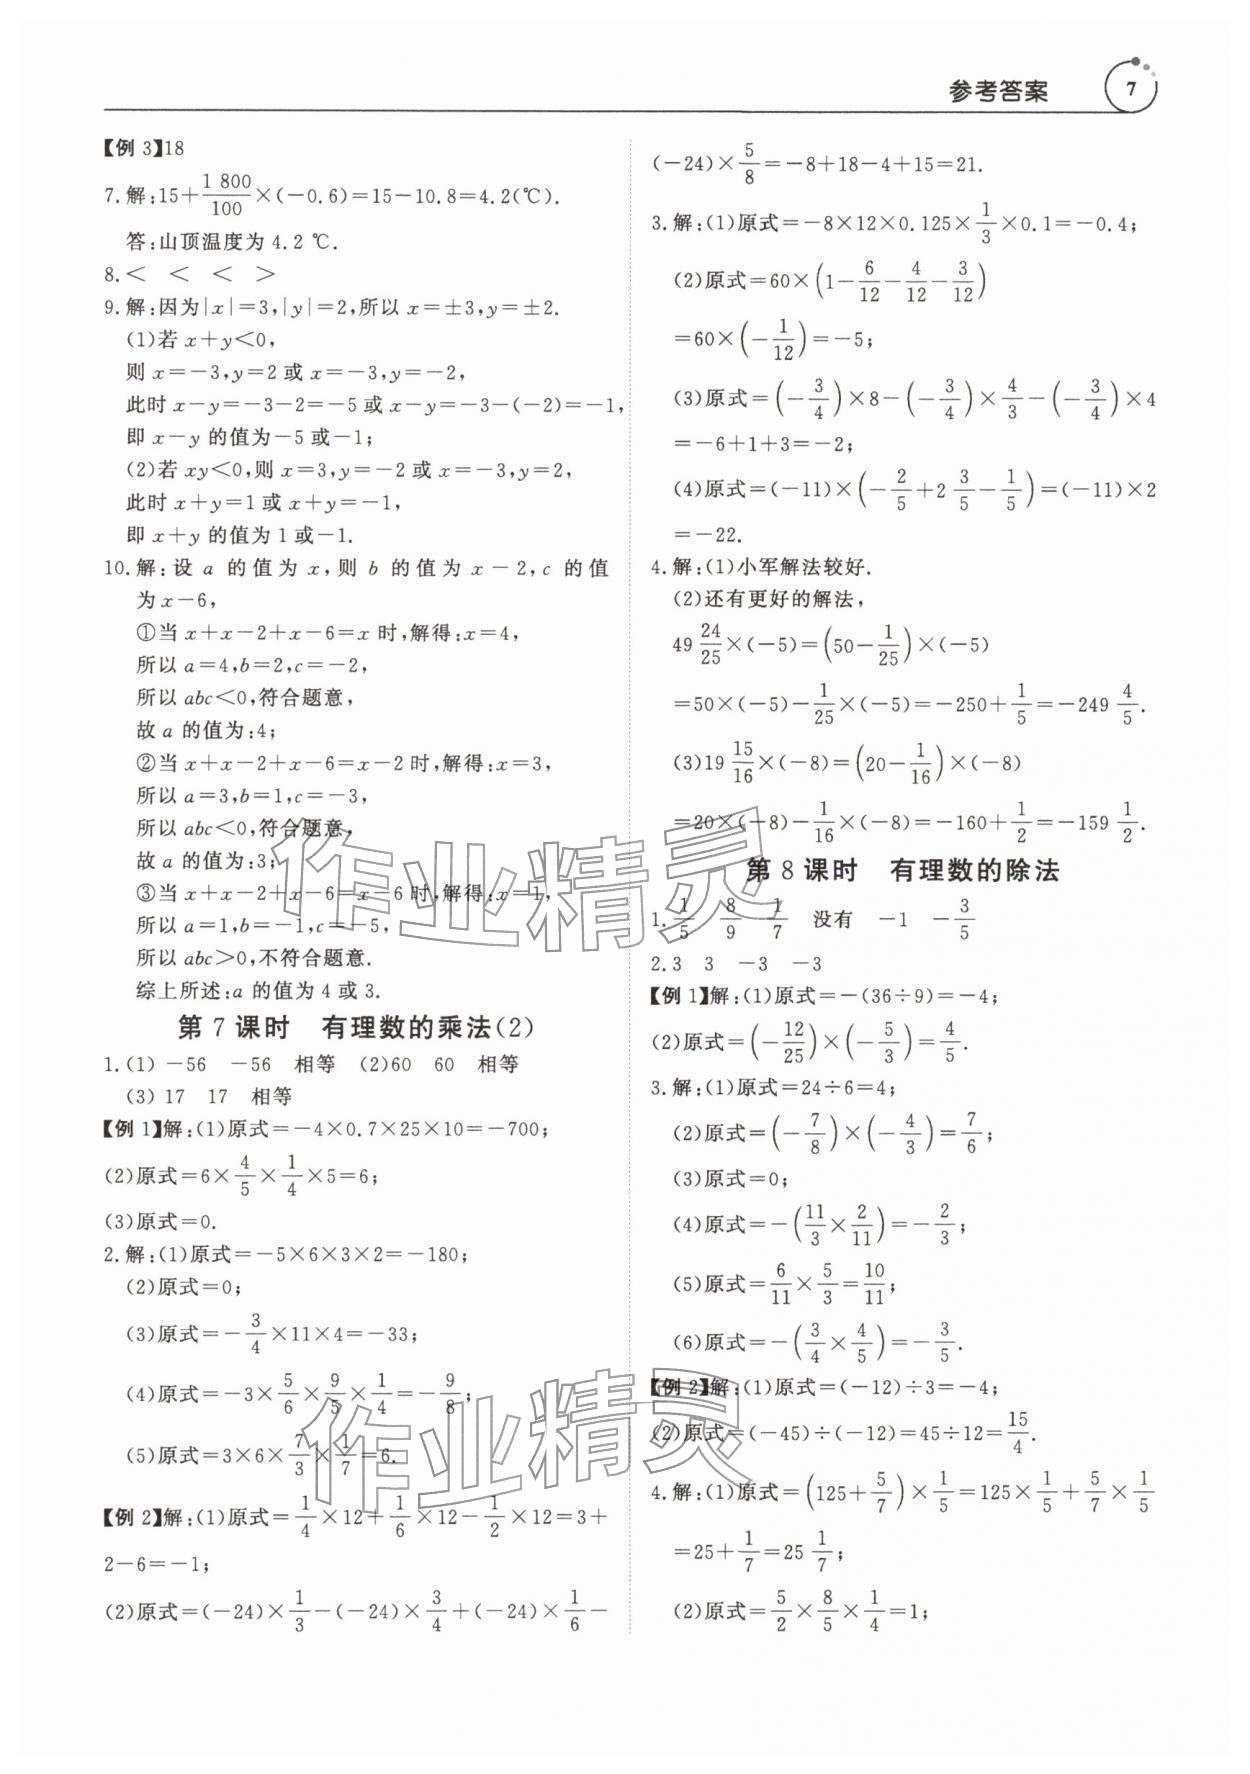 参考答案 7
【例 3】18
7.解:15+1 800/100×(-0.6)=15-10.8=4.2(℃).
答:山顶温度为 4.2 ℃.
8.< < < >
9.解:因为|x|=3,|y|=2,所以 x=±3,y=±2.
(1)若 x+y<0,
则 x=-3,y=2 或 x=-3,y=-2,
此时 x-y=-3-2=-5 或 x-y=-3-(-2)=-1,
即 x-y 的值为-5 或-1;
(2)若 xy<0,则 x=3,y=-2 或 x=-3,y=2,
此时 x+y=1 或 x+y=-1,
即 x+y 的值为 1 或-1.
10.解:设 a 的值为 x,则 b 的值为 x-2,c 的值
为 x-6,
①当 x+x-2+x-6=x 时,解得:x=4,
所以 a=4,b=2,c=-2,
所以 abc<0,符合题意,
故 a 的值为:4;
②当 x+x-2+x-6=x-2 时,解得:x=3,
所以 a=3,b=1,c=-3,
所以 abc<0,符合题意,
故 a 的值为:3;
③当 x+x-2+x-6=x-6 时,解得:x=1,
所以 a=1,b=-1,c=-5,
所以 abc>0,不符合题意.
综上所述:a 的值为 4 或 3.
第 7 课时 有理数的乘法(2)
1.(1) -56 -56 相等 (2)60 60 相等
(3) 17 17 相等
【例 1】解:(1)原式=-4×0.7×25×10=-700;
(2)原式=6×4/5×1/4×5=6;
(3)原式=0.
2.解:(1)原式=-5×6×3×2=-180;
(2)原式=0;
(3)原式=-3/4×11×4=-33;
(4)原式=-3×5/6×9/5×1/4=-9/8;
(5)原式=3×6×7/3×1/7=6.
【例 2】解:(1)原式=1/4×12+1/6×12-1/2×12=3+
2-6=-1;
(2)原式=(-24)×1/3-(-24)×3/4+(-24)×1/6-
(-24)×5/8=-8+18-4+15=21.
3.解:(1)原式=-8×12×0.125×1/3×0.1=-0.4;
(2)原式=60×(1-6/12-4/12-3/12)
=60×(-1/12)=-5;
(3)原式=(-3/4)×8-(-3/4)×4/3-(-3/4)×4
=-6+1+3=-2;
(4)原式=(-11)×(-2/5+2 3/5-1/5)=(-11)×2
=-22.
4.解:(1)小军解法较好.
(2)还有更好的解法,
49 24/25×(-5)=(50-1/25)×(-5)
=50×(-5)-1/25×(-5)=-250+1/5=-249 4/5.
(3)19 15/16×(-8)=(20-1/16)×(-8)
=20×(-8)-1/16×(-8)=-160+1/2=-159 1/2.
第 8 课时 有理数的除法
1.1/5 8/9 1/7 没有 -1 -3/5
2.3 3 -3 -3
【例 1】解:(1)原式=-(36÷9)=-4;
(2)原式=(-12/25)×(-5/3)=4/5.
3.解:(1)原式=24÷6=4;
(2)原式=(-7/8)×(-4/3)=7/6;
(3)原式=0;
(4)原式=-(11/3×2/11)=-2/3;
(5)原式=6/11×5/3=10/11;
(6)原式=-(3/4×4/5)=-3/5.
【例 2】解:(1)原式=(-12)÷3=-4;
(2)原式=(-45)÷(-12)=45÷12=15/4.
4.解:(1)原式=(125+5/7)×1/5=125×1/5+5/7×1/5
=25+1/7=25 1/7;
(2)原式=5/2×8/5×1/4=1;
作业精灵
作业精灵